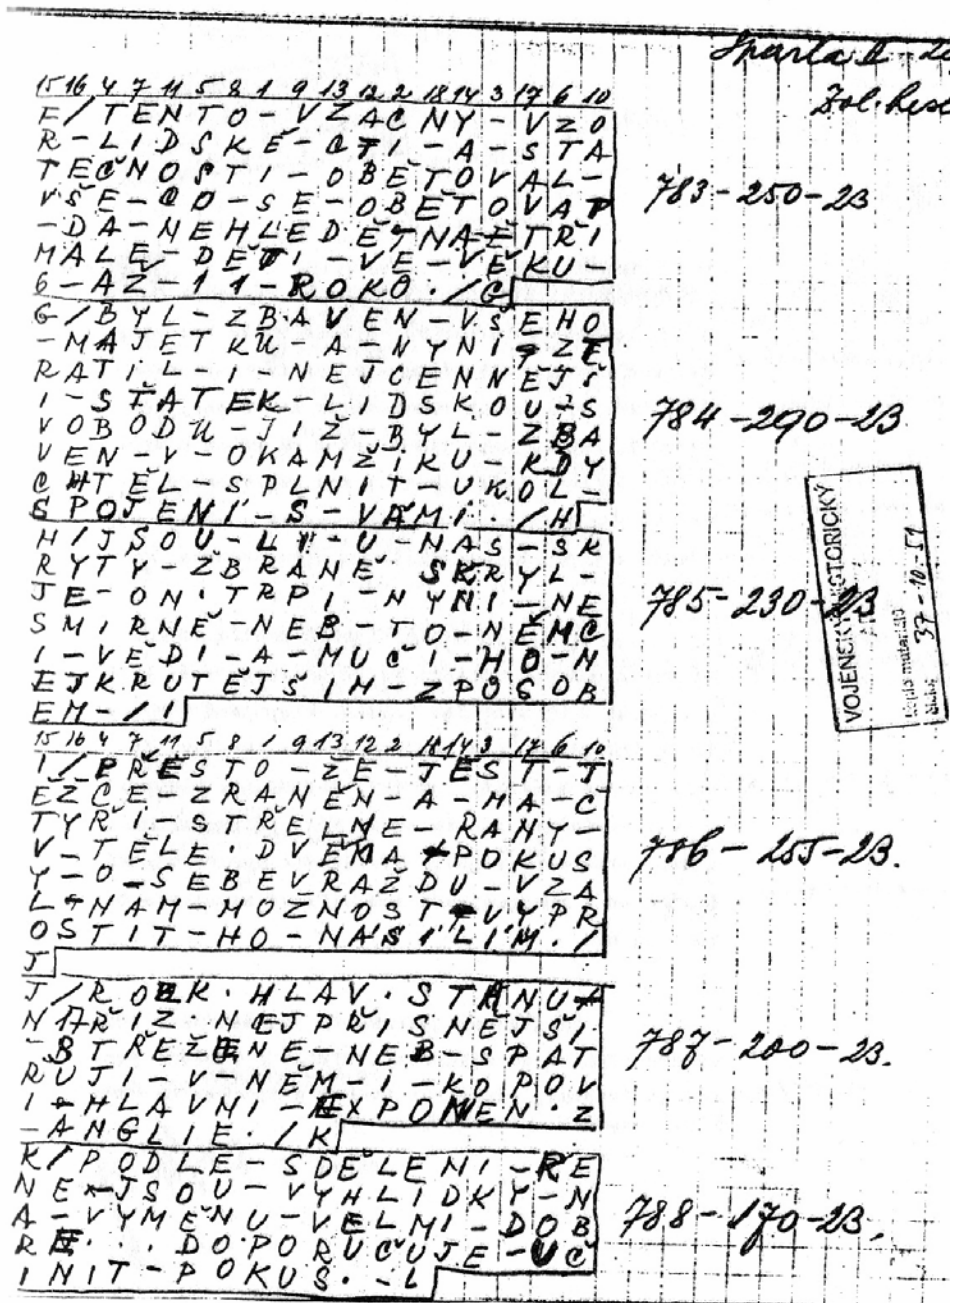 Sparta
15 16 4 7 11 5 8 1 9 13 12 2 18 14 3 17 6 10
E/TENTO-VZACNY-VZO
R-LIDSKÉ-CTI-A-STA
TEČNOSTI-OBĚTOVAL-
VŠE-CO-SE-OBĚTOVAT
-DÁ-NEHLEDĚ-NA-TŘI
MALÉ-DĚTI-VE-VĚKU-
6-AŽ-11-ROKO./G
783-250-23
G/BYL-ZBAVEN-VŠEHO
-MAJETKU-A-NYNÍ-ZT
RATIL-I-NEJCENNĚJŠ
I-STATEK-LIDSKOU-S
VOBODU-JIŽ-BYL-ZBA
VEN-V-OKAMŽIKU-KDY
CHTĚL-SPLNIT-UKOL-
SPOJENI-S-VÁMI./H
784-290-23
H/JSOU-LI-U-NÁS-SK
RYTY-ZBRANĚ SKRYL-
JE-ON.TRPI-NYNI-NE
SMIRNĚ-NEB-TO-NĚMC
I-VĚDI-A-MUČI-HO-N
EJKRUTĚJŠIM-ZPOSOB
EM-/I
785-230-23
VOJENSKÝ HISTORICKÝ
37-10-51
15 16 4 7 11 5 8 1 9 13 12 2 18 14 3 17 6 10
I/PŘESTO-ŽE-JEST-T
ĚŽCE-ZRANĚN-A-MA-Č
TYŘI-STŘELNE-RANY-
V-TĚLE.DVĚMA-POKUS
Y-O-SEBEVRAŽDU-VZA
L-NAM-MOŽNOST-VYPR
OSTIT-HO-NÁSILIM./
J
786-255-23.
J/ROZK.HLAV.STANU-
N 17-ŘIZ.NEJPŘISNEJŠI.
-STŘEŽENE-NEB-SPAT
RUJI-V-NĚM-I-KOPOV
I-HLAVNI-EXPONEN.Z
-ANGLIE./K
787-200-23.
K/PODLE-SDĚLENI-RE
NE-JSOU-VYHLIDKY-N
A-VYMĚNU-VELMI-DOB
RE..DOPORUČUJE-UČ
INIT-POKUS.-L
788-170-23.